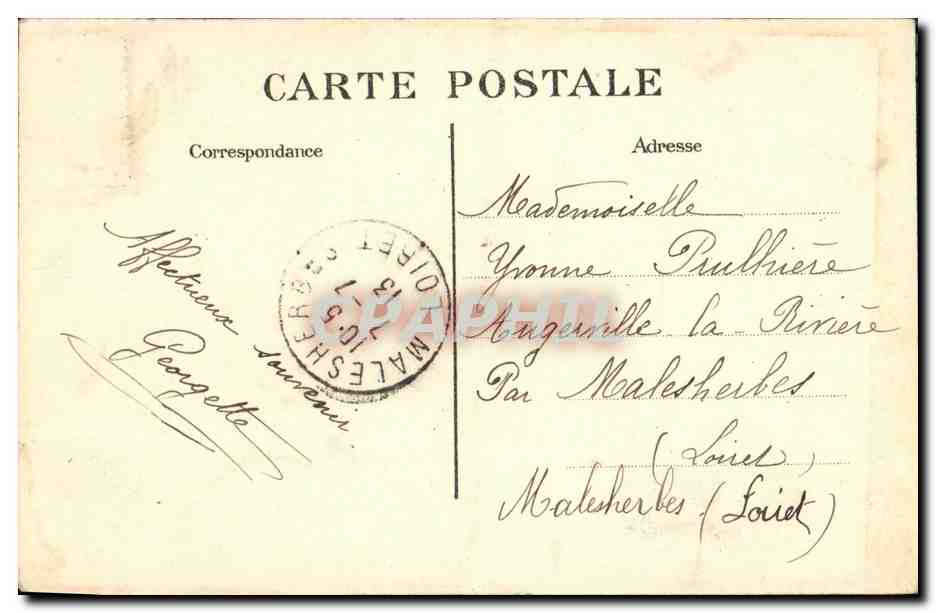 CARTE POSTALE
Correspondance
Affectueux souvenir.
Georgette
MALESHERBES
LOIRET
13
CPAPHIL
Adresse
Mademoiselle
Yvonne Prulhière
Augerville la Rivière
Par Malesherbes
(Loiret)
Malesherbes (Loiret)